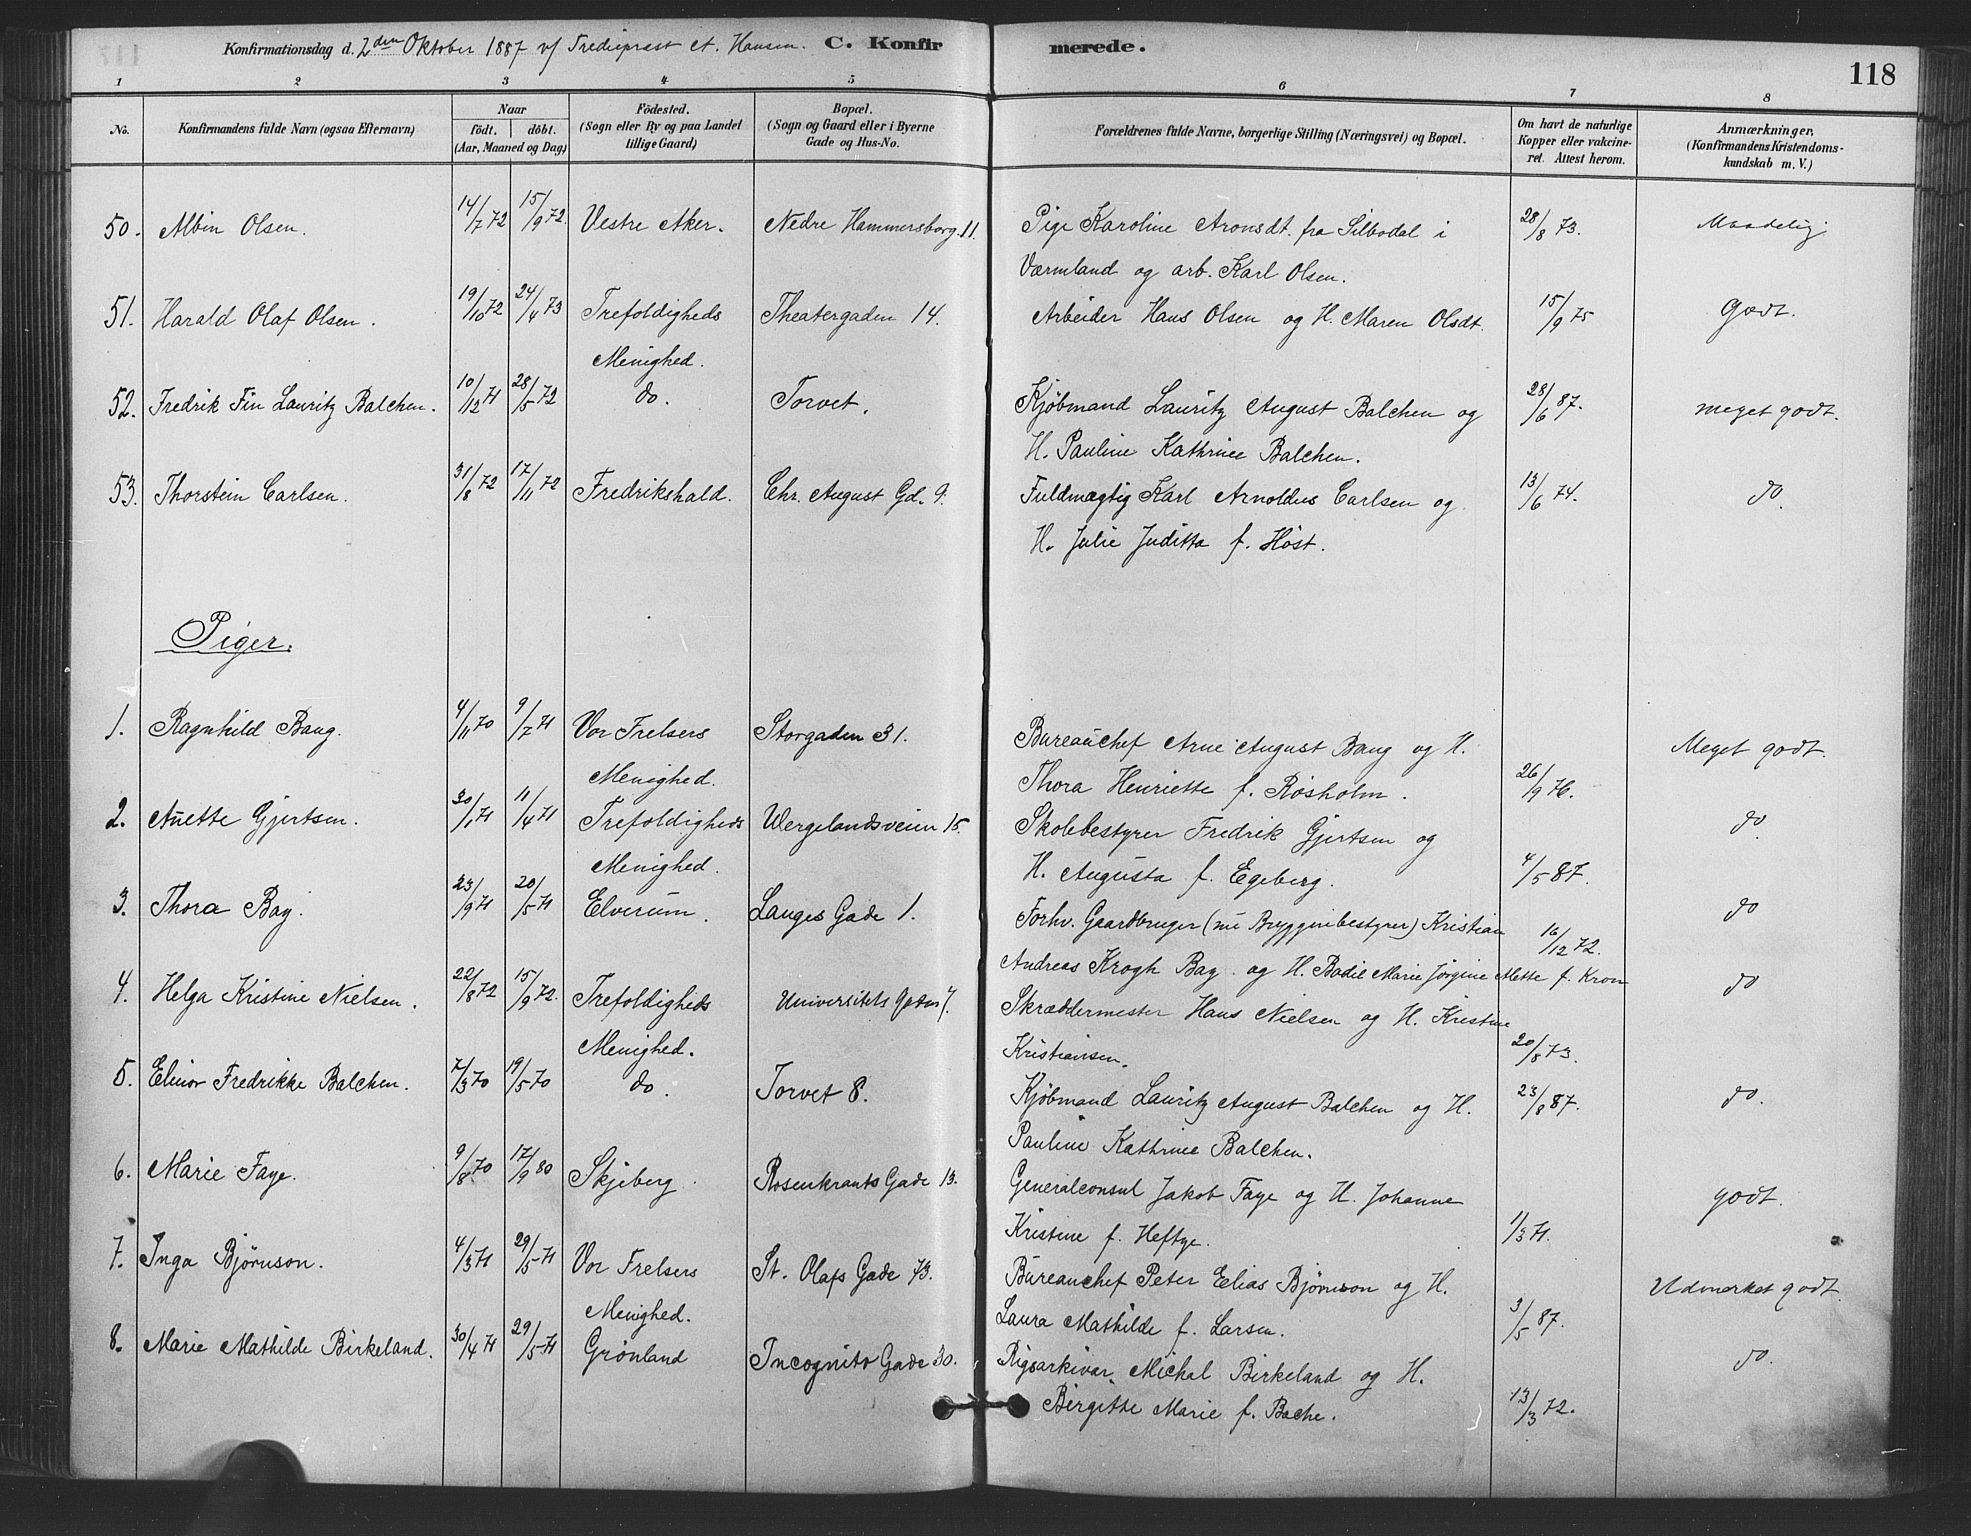 Konfirmationsdag d. 2den Oktober 1887 v/ Trediepræst Hansen. C. Konfirmerede.
118
1 2 3 4 5 6 7 8
No.
Konfirmandens fulde Navn (ogsaa Efternavn)
Naar födt. döbt. (Aar, Maaned og Dag)
Födested. (Sogn eller By og paa Landet tillige Gaard)
Bopæl. (Sogn og Gaard eller i Byerne Gade og Hus-No.
Forældrenes fulde Navne, borgerlige Stilling (Næringsvei) og Bopæl.
Om havt de naturlige Kopper eller vakcineret. Attest herom.
Anmærkninger. (Konfirmandens Kristendomskundskab m. V.)
50. Albin Olsen. 14/7 72 15/9 72. Vestre Aker. Nedre Hammersborg 11. Pige Karoline Aronsdt. fra Silbodal i 28/8 73. Maadelig
Værmland og arb. Karl Olsen.
51. Harald Olaf Olsen. 19/10 72 24/4 73 Trefoldigheds Theatergaden 14. Arbeider Hans Olsen og H. Maren Olsdt. 15/9 75 Godt.
Menighed.
52. Fredrik Fin Lauritz Balchen. 10/12 71 28/5 72 do. Torvet. Kjøbmand Lauritz August Balchen og 28/6 87. meget godt.
H. Pauline Kathrine Balchen.
53. Thorstein Carlsen. 31/8 72 17/11 72 Fredrikshald. Chr. August Gd. 9. Fuldmægtig Karl Arnoldus Carlsen og 13/6 74. do.
H. Julie Juditta f. Høst.
Piger.
1. Ragnhild Bang. 4/11 70 9/7 71 Vor Frelsers Storgaden 31. Bureauchef Arne August Bang og H. Meget godt.
Menighed. Thora Henriette f. Røsholm. 26/9 76.
2. Anette Gjertsen. 30/1 71 11/4 71 Trefoldigheds Wergelandsveien 15. Skolebestyrer Fredrik Gjertsen og do.
Menighed. H. Augusta f. Egeberg. 4/5 87.
3. Thora Bay. 23/9 71 20/5 71 Elverum. Langes Gade 1. Forhv. Gaardbruger (nu Bryggeribestyrer) Kristian 16/12 72. do
Andreas Krogh Bay og H. Bodil Marie Jørgine Mette f. Krom
4. Helga Kristine Nielsen. 22/8 72 15/9 72. Trefoldigheds Universitets Gaden 7. Skræddermester Hans Nielsen og H. Kristine do
Menighed. Kristiansen. 20/8 73.
5. Elinor Fredrikke Balchen. 7/3 70 19/5 70 do. Torvet 8. Kjøbmand Lauritz August Balchen og H. 23/8 87. do.
Pauline Kathrine Balchen.
6. Marie Faye. 9/8 70 17/9 80 Skjeberg. Rosenkrants Gade 13. Generalconsul Jakob Faye og H. Johanne godt.
Kristine f. Heftye. 1/3 71.
7. Inga Bjørnson. 4/3 71 29/5 71 Vor Frelsers St. Olafs Gade 73. Bureauchef Peter Elias Bjørnson og H. Udmerket godt.
Menighed. Laura Mathilde f. Larsen. 3/5 87.
8. Marie Mathilde Birkeland. 30/4 71 29/5 71 Grønland Incognito Gade 30. Rigsarkivar Michal Birkeland og H. do.
Birgitte Marie f. Bache. 13/3 72.